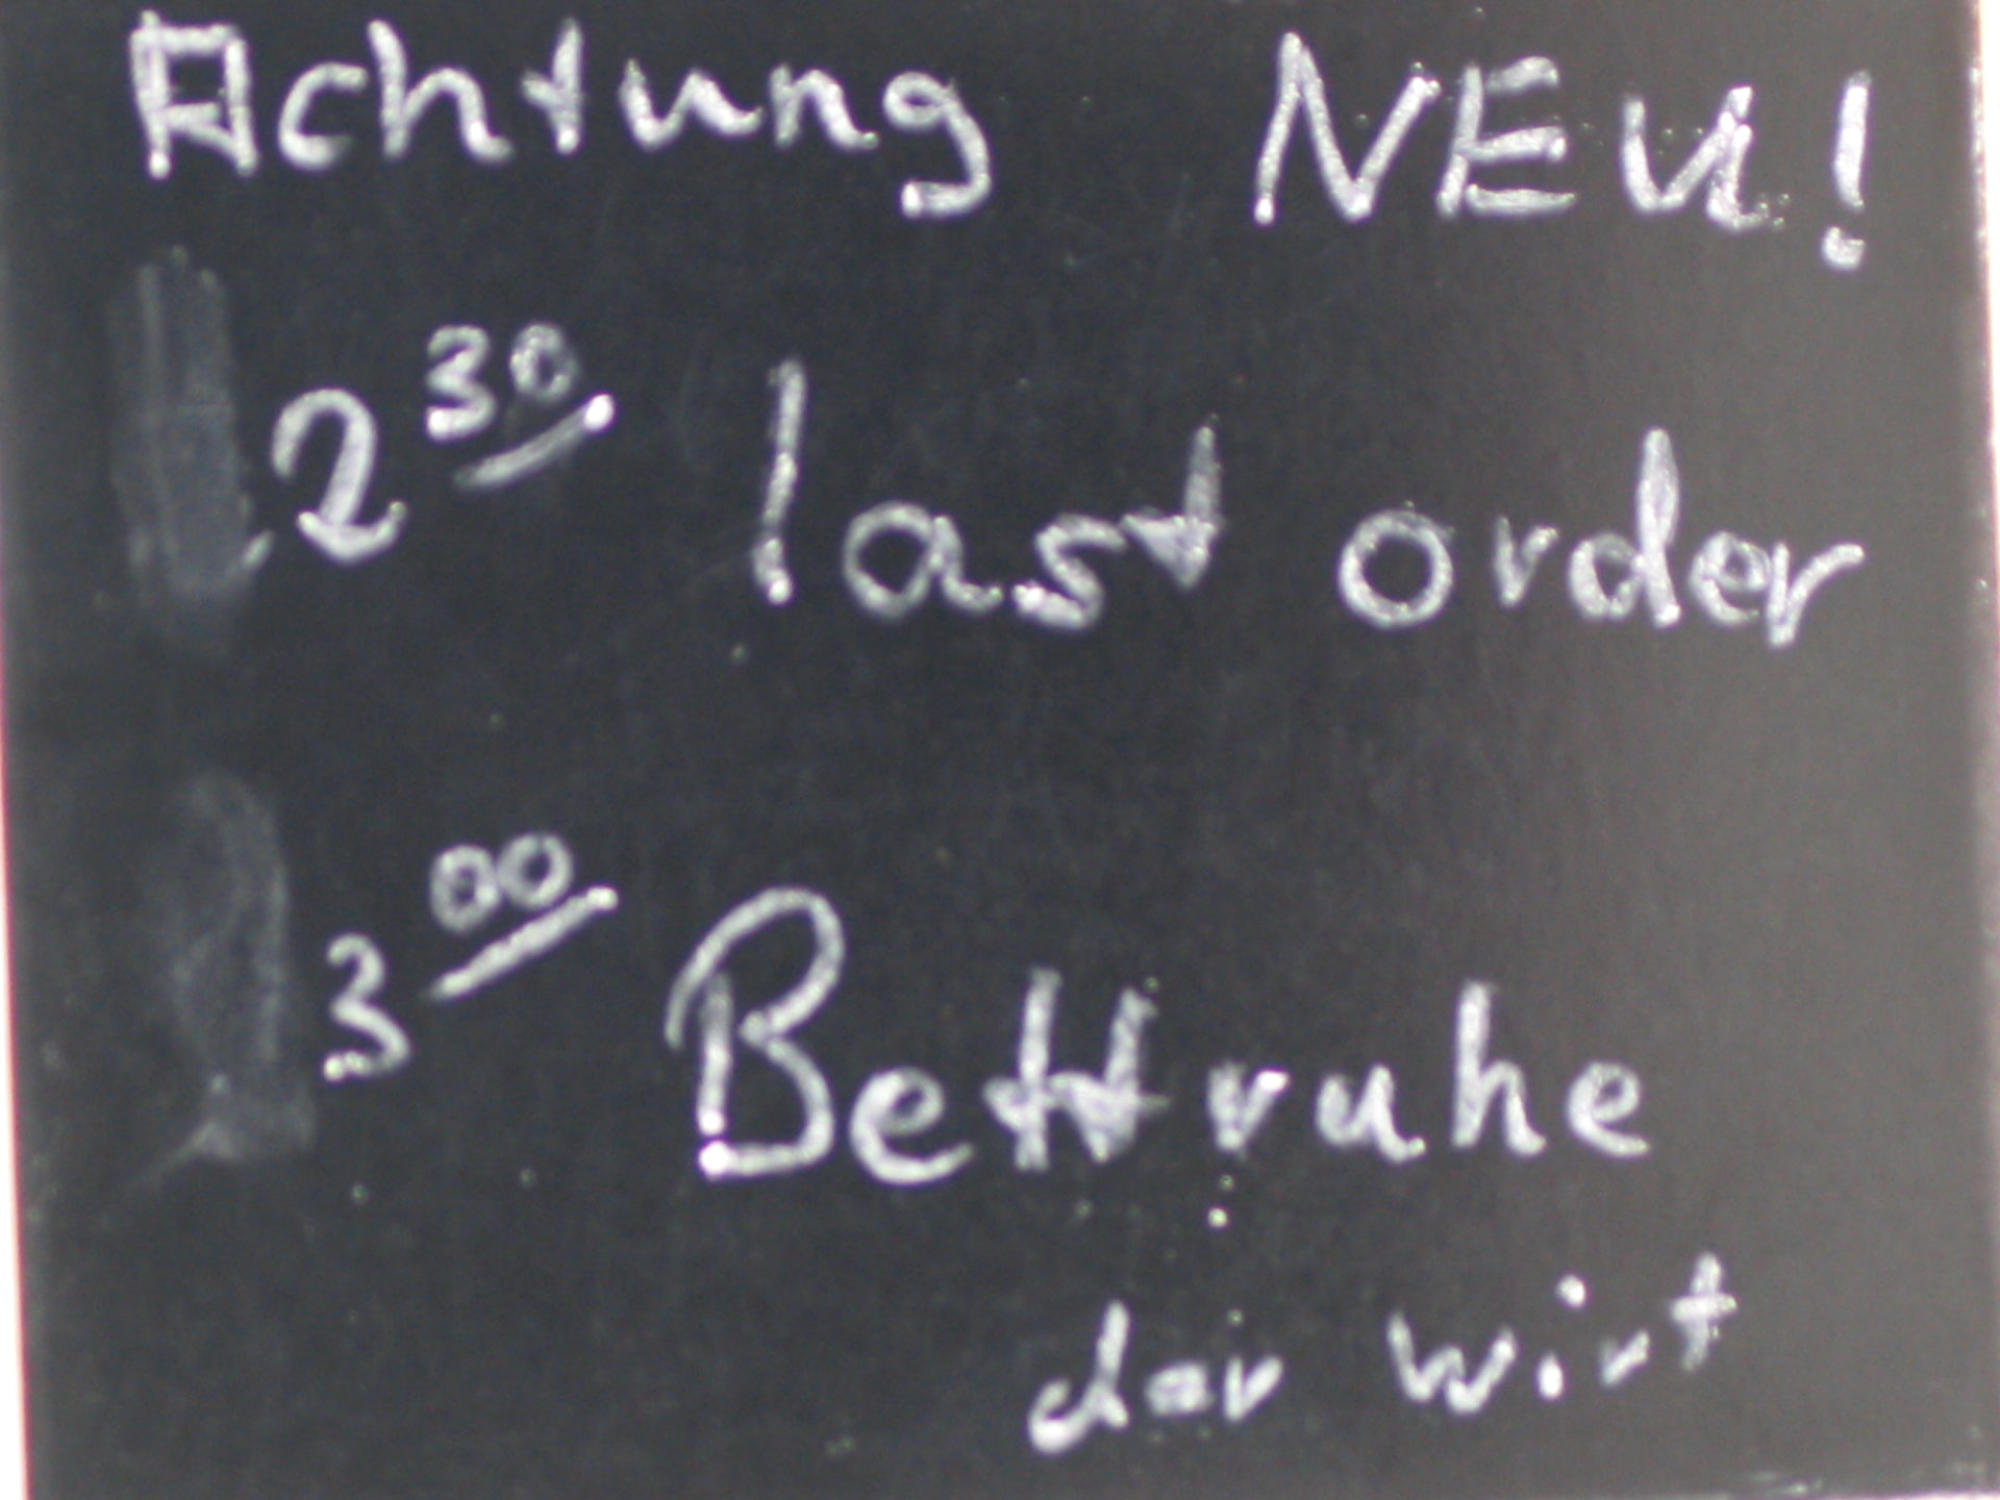 Achtung NEU!
2 30 last order
3 00 Bettruhe
der wirt